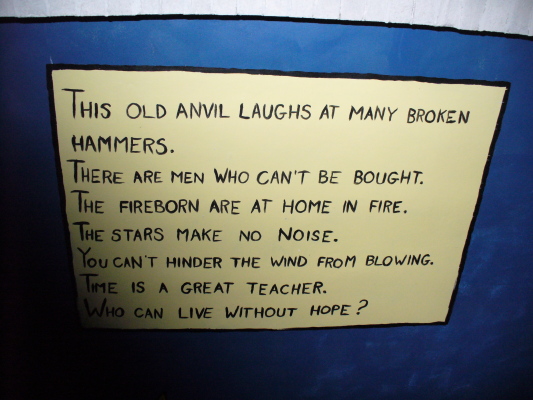 THIS OLD ANVIL LAUGHS AT MANY BROKEN
HAMMERS.
THERE ARE MEN WHO CAN'T BE BOUGHT.
THE FIREBORN ARE AT HOME IN FIRE.
THE STARS MAKE NO NOISE.
YOU CAN'T HINDER THE WIND FROM BLOWING.
TIME IS A GREAT TEACHER.
WHO CAN LIVE WITHOUT HOPE?